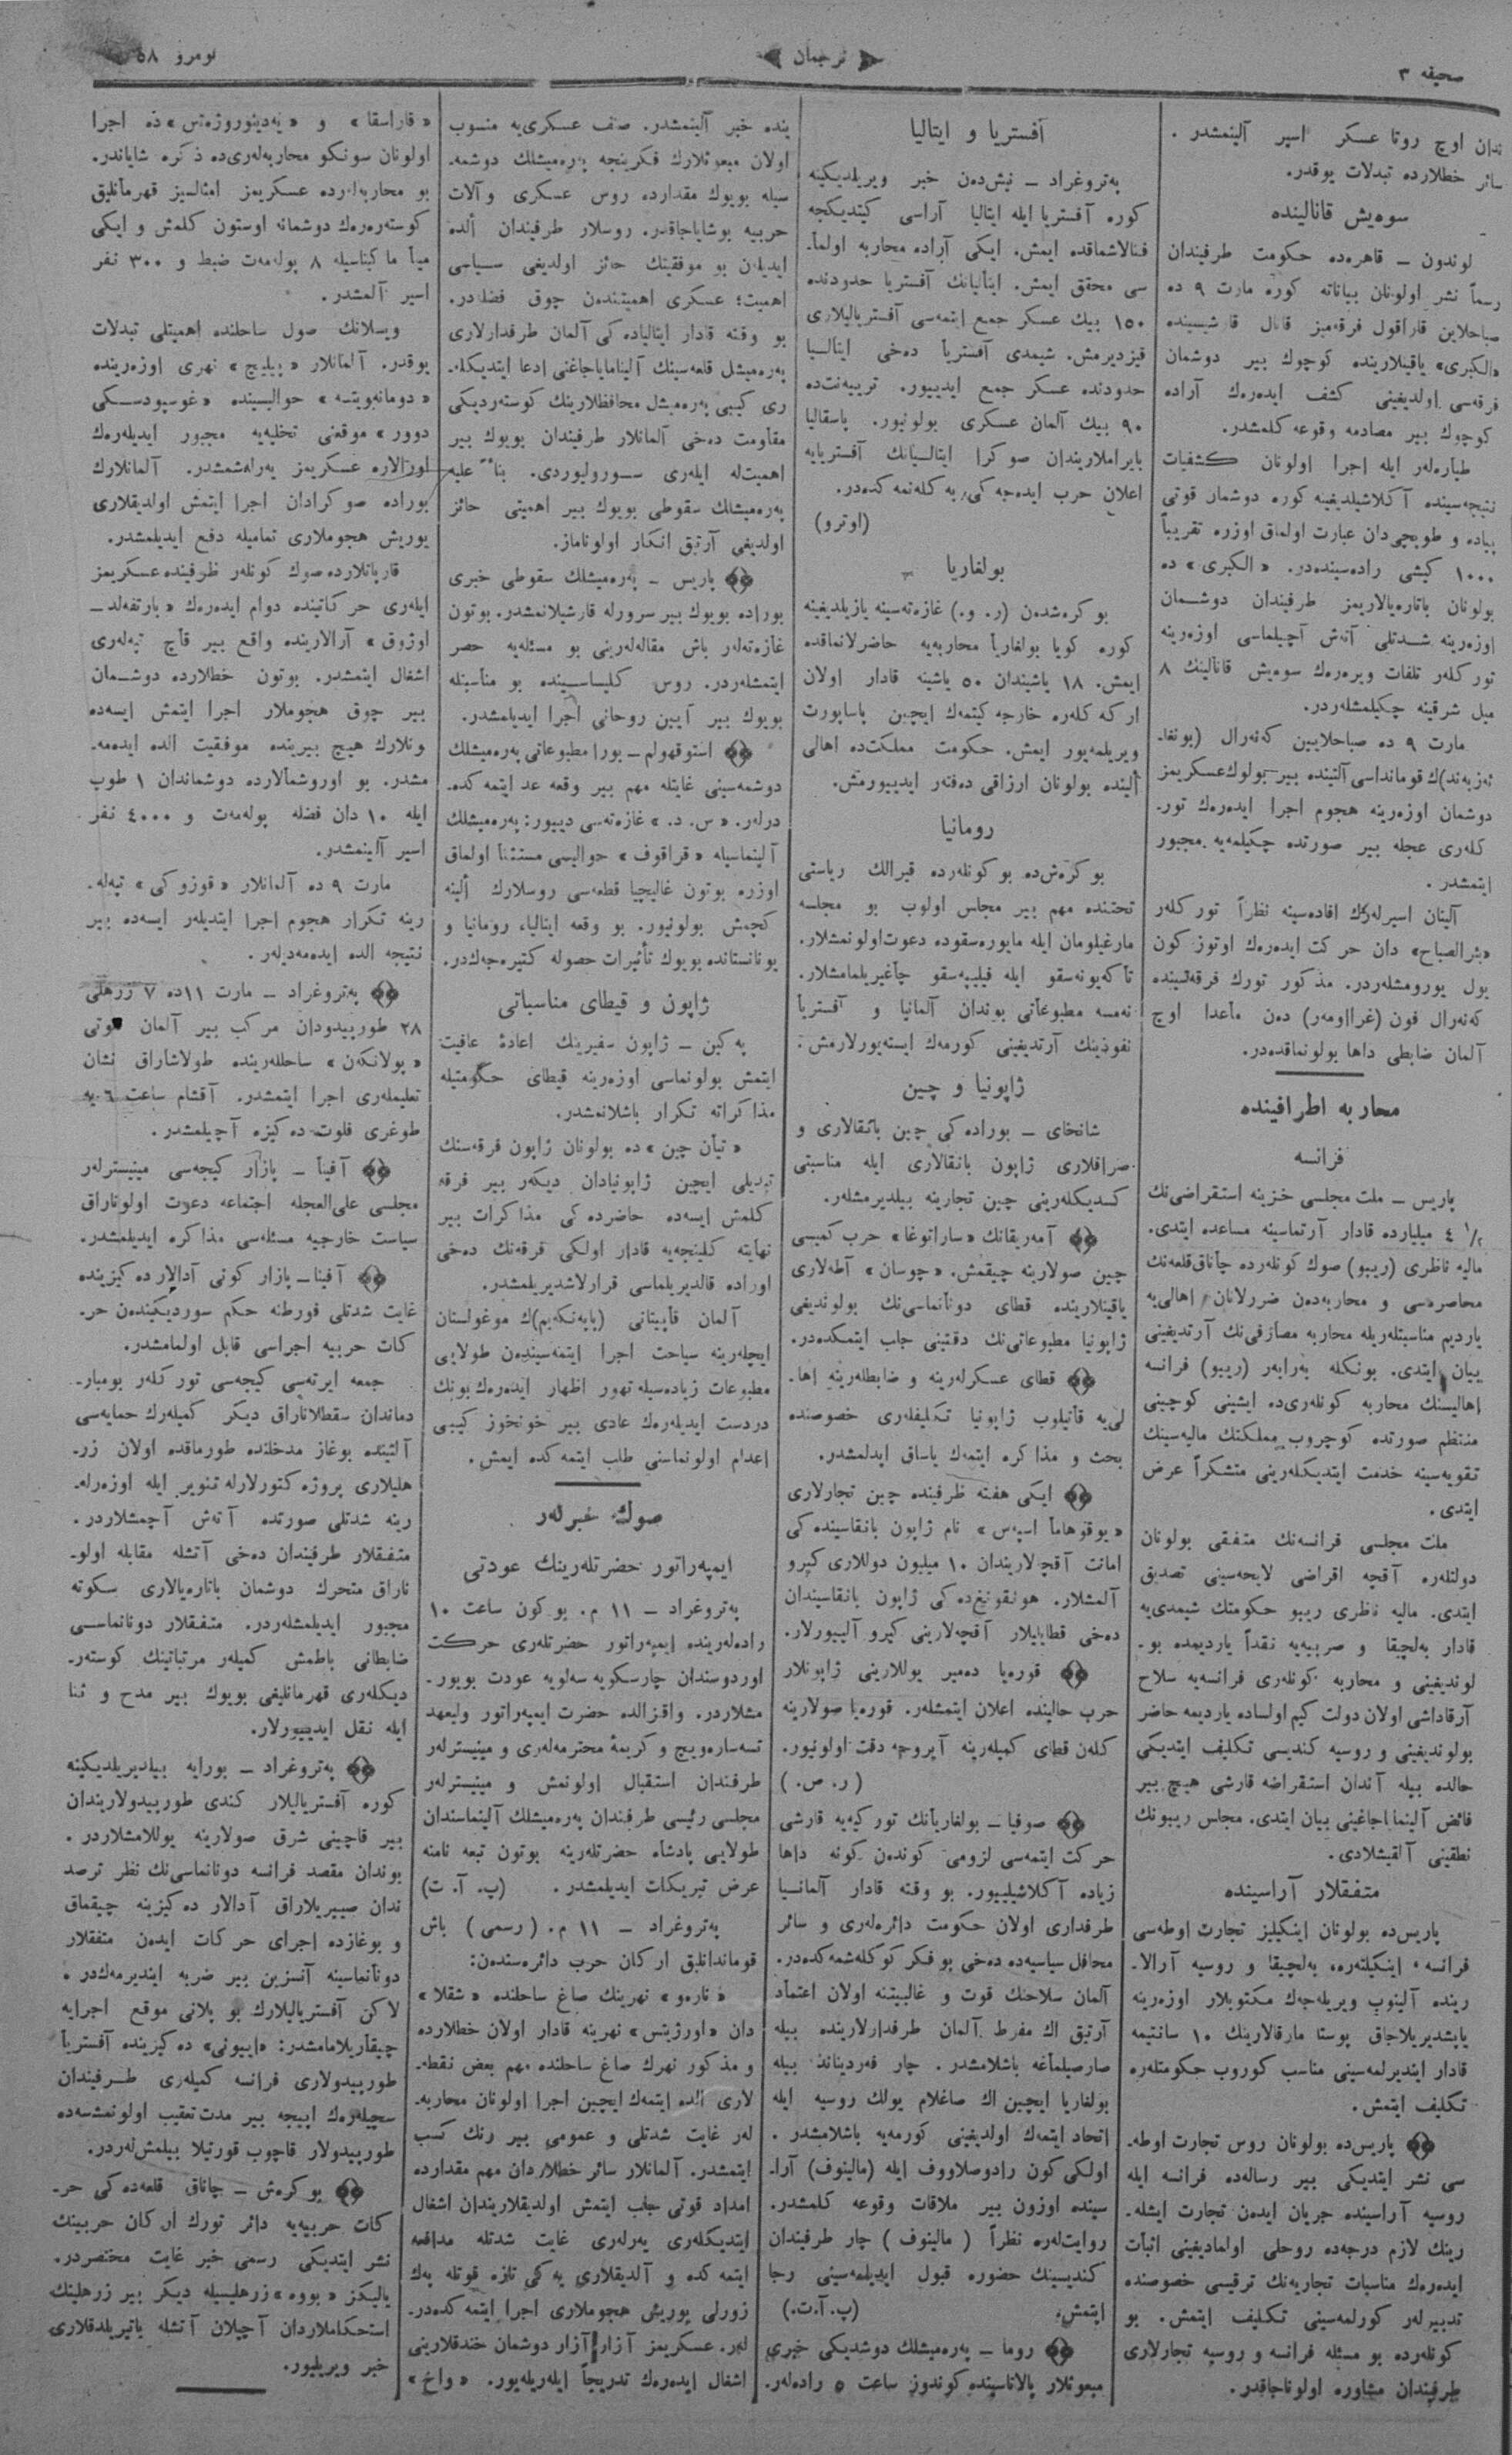 صحیفه ۳
ترجمان
نومرو ۵۸
ندان اوچ روتا عسکر اسیر آلینمشدر.
سائر خطلارده تبدلات یوقدر.
سوه‌یش قانالینده
لوندون – قاهره‌ده حکومت طرفیندان
رسماً نشر اولونان بیاناته کوره مارت ۹ ده
صباحلاین قاراقول فرقه‌میز قانال قارشیسینده
«الکبری» یاقینلارینده کوچوك بیر دوشمان
فرقه‌سی اولدیغینی کشف ایده‌رك آراده
کوچوك بیر مصادمه وقوعه کلمشدر.
طیاره‌لر ایله اجرا اولونان کشفیات
نتیجه‌سینده آکلاشیلدیغینه کوره دوشمان قوتی
پیاده و طوپچی‌دان عبارت اولماق اوزره تقریباً
۱۰۰۰ کیشی راده‌سینده‌در. «الکبری» ده
بولونان باتاره‌یالاریمز طرفیندان دوشمان
اوزه‌رینه شدتلی آتش آچیلماسی اوزه‌رینه
تورکلر تلفات ویره‌رك سوه‌یش قانالینك ۸
میل شرقینه چکیلمشله‌ردر.
مارت ۹ ده صباحلایین که‌نه‌رال (یونغا-
نه‌زبه‌ند)ك قومانداسی آلتینده بیر بولوك عسکریمز
دوشمان اوزه‌رینه هجوم اجرا ایده‌رك تور-
کله‌ری عجله بیر صورتده چکیلمه‌یه مجبور
ایتمشدر.
آلینان اسیرلرك افاده‌سینه نظراً تورکلر
«بئرالصباح» دان حرکت ایده‌رك اوتوز کون
یول یورومشله‌ردر. مذکور تورك فرقه‌سینده
که‌نه‌رال فون (غرااومه‌ر) ده‌ن ماعدا اوچ
آلمان ضابطی داها بولونماقده‌در.
محاربه اطرافینده
فرانسه
پاریس – ملت مجلسی خزینه استقراضی‌نك
۴ ۱/۲ میلیارده قادار آرتماسینه مساعده ایتدی.
مالیه ناظری (ریبو) صوك کونلرده چاناق‌قلعه‌نك
محاصره‌سی و محاربه‌دن ضررلانان اهالی‌یه
یاردیم مناسبتله‌ریله محاربه مصارفی‌نك آرتدیغینی
بیان ایتدی. بونکله به‌رابه‌ر (ریبو) فرانسه
اهالیسنك محاربه کونله‌ری‌ده ایشینی کوچینی
منتظم صورتده کوچروب مملکتك مالیه‌سینك
تقویه‌سینه خدمت ایتدیکله‌رینی متشکراً عرض
ایتدی.
ملت مجلسی فرانسه‌نك متفقی بولونان
دولتله‌ره آقچه اقراضی لایحه‌سینی تصدیق
ایتدی. مالیه ناظری ریبو حکومتك شیمدی‌یه
قادار به‌لچیقا و صربیه‌یه نقداً یاردیمده بو-
لوندیغینی و محاربه کونله‌ری فرانسه‌یه سلاح
آرقاداشی اولان دولت کیم اولساده یاردیمه حاضر
بولوندیغینی و روسیه کندیسی تکلیف ایتدیکی
حالده بیله آندان استقراضه قارشی هیچ بیر
فائض آلینمایاجاغینی بیان ایتدی. مجلس ریبونك
نطقینی آلقیشلادی.
متفقلار آراسینده
پاریس‌ده بولونان اینکیلیز تجارت اوطه‌سی
فرانسه، اینکیلته‌ره، به‌لچیقا و روسیه آرالا-
رینده آلینوب ویریله‌جك مکتوبلار اوزه‌رینه
یاپشدیریلاجاق پوستا مارقالارینك ۱۰ سانتیمه
قادار ایندیرلمه‌سینی مناسب کوروب حکومتله‌ره
تکلیف ایتمش.
پاریس‌ده بولونان روس تجارت اوطه-
سی نشر ایتدیکی بیر رساله‌ده فرانسه ایله
روسیه آراسینده جریان ایدن تجارت ایشله-
رینك لازم درجه‌ده روحلی اولمادیغینی اثبات
ایده‌رك مناسبات تجاریه‌نك ترقیسی خصوصنده
تدبیرلر کورلمه‌سینی تکلیف ایتمش. بو
کونله‌رده بو مسئله فرانسه و روسیه تجارلاری
طرفیندان مشاوره اولوناجاقدر.
آفستریا و ایتالیا
په‌تروغراد – نیش‌ده‌ن خبر ویریلدیکینه
کوره آفستریا ایله ایتالیا آراسی کیتدیکجه
فنالاشماقده ایمش. ایکی آراده محاربه اولما-
سی محقق ایمش. ایتالیانك آفستریا حدودنده
۱۵۰ بیك عسکر جمع ایتمه‌سی آفستریالیلاری
قیزدیرمش. شیمدی آفستریا ده‌خی ایتالیا
حدودنده عسکر جمع ایدییور. تریه‌نت‌ده
۹۰ بیك آلمان عسکری بولونیور. پاسقالیا
بایراملاریندان صوکرا ایتالیانك آفستریایه
اعلان حرب ایده‌جه‌کی به‌کله‌نمه‌کده‌در.
(اوترو)
بولغاریا
بوکره‌شدن (ر. و.) غازه‌ته‌سینه یازیلدیغینه
کوره کویا بولغاریا محاربه‌یه حاضرلانماقده
ایمش. ۱۸ یاشیندان ۵۰ یاشینه قادار اولان
ارکه‌کله‌ره خارجه کیتمه‌ك ایچین پاساپورت
ویریلمه‌یور ایمش. حکومت مملکت‌ده اهالی
ألینده بولونان ارزاقی ده‌فته‌ر ایدییورمش.
رومانیا
بوکره‌ش‌ده بو کونله‌رده قیرالك ریاستی
تحتنده مهم بیر مجلس اولوب بو مجلسه
مارغیلومان ایله مایوره‌سقوده دعوت اولونمشلار.
تاکه‌یونه‌سقو ایله فیلیپه‌سقو چاغیریلمامشلار.
نه‌مسه مطبوعاتی بوندان آلمانیا و آفستریا
نفوذینك آرتدیغینی کورمه‌ك ایسته‌یورلارمش.
ژاپونیا و چین
شانخای – بوراده‌کی چین بانقالاری و
صرافلاری ژاپون بانقالاری ایله مناسبتی
کسدیکله‌رینی چین تجارینه بیلدیرمشلر.
آمه‌ریقانك «ساراتوغا» حرب کمیسی
چین صولارینه چیقمش. «چوسان» آطه‌لاری
یاقینلارینده قطای دونانماسی‌نك بولوندیغی
ژاپونیا مطبوعاتی‌نك دقتینی جلب ایتمکده‌در.
قطای عسکرله‌رینه و ضابطله‌رینه اها-
لی‌یه قاتیلوب ژاپونیا تکلیفله‌ری خصوصنده
بحث و مذاکره ایتمه‌ك یاساق ایدلمشدر.
ایکی هفته ظرفینده چین تجارلاری
«یوقوهاما اسپه‌س» نام ژاپون بانقاسینده‌کی
امانت آقچه‌لاریندان ۱۰ میلیون دوللاری کیرو
آلمشلار. هونقونغ‌ده‌کی ژاپون بانقاسیندان
ده‌خی قطایلیلار آقچه‌لارینی کیرو آلییورلار.
قوره‌یا ده‌میر یوللارینی ژاپونلار
حرب حالینده اعلان ایتمشلر. قوره‌یا صولارینه
کلن قطای کمیله‌رینه آیروجه دقت اولونیور.
(ر. ص.)
صوفیا – بولغاریانك تورکیه‌یه قارشی
حرکت ایتمه‌سی لزومی کوندن کونه داها
زیاده آکلاشیلییور. بو وقته قادار آلمانیا
طرفداری اولان حکومت دائره‌له‌ری و سائر
محافل سیاسیه‌ده ده‌خی بو فکر کوکله‌شمه‌کده‌در.
آلمان سلاحنك قوت و غالبیتنه اولان اعتماد
آرتیق اك مفرط آلمان طرفدارلارینده بیله
صارصیلمأغه باشلامشدر. چار فه‌ردیناند بیله
بولغاریا ایچین اك صاغلام یولك روسیه ایله
اتحاد ایتمه‌ك اولدیغینی کورمه‌یه باشلامشدر.
اولکی کون رادوصلاووف ایله (مالینوف) آرا-
سینده اوزون بیر ملاقات وقوعه کلمشدر.
روایت‌له‌ره نظراً (مالینوف) چار طرفیندان
کندیسینك حضوره قبول ایدیلمه‌سینی رجا
ایتمش. (پ.آ.ت.)
روما – په‌ره‌میشلك دوشدیکی خبری
مبعوثلار پالاتاسینده کوندوز ساعت ۵ راده‌لر-
ینده خبر آلینمشدر. صنف عسکری‌یه منسوب
اولان مبعوثلارك فکرینجه په‌ره‌میشلك دوشمه-
سیله بویوك مقدارده روس عسکری و آلات
حربیه بوشایاجاقدر. روسلار طرفیندان ألده
ایدیلن بو موفقیتك حائز اولدیغی سیاسی
اهمیت؛ عسکری اهمیتندن چوق فضله‌در.
بو وقته قادار ایتالیاده‌کی آلمان طرفدارلاری
په‌ره‌میشل قلعه‌سینك آلینامایاجاغنی إدعا ایتدیکله-
ری کیبی په‌ره‌میشل محافظلارینك کوسته‌ردیکی
مقاومت ده‌خی آلمانلار طرفیندان بویوك بیر
اهمیت‌له ایله‌ری سورولیوردی. بناءً علیه
په‌ره‌میشلك سقوطی بویوك بیر اهمیتی حائز
اولدیغی آرتیق انکار اولوناماز.
پاریس – په‌ره‌میشلك سقوطی خبری
بوراده بویوك بیر سرورله قارشیلانمشدر. بوتون
غازه‌ته‌لر باش مقاله‌له‌رینی بو مسئله‌یه حصر
ایتمشله‌ردر. روس کلیساسینده بو مناسبتله
بویوك بیر آیین روحانی اجرا ایدیلمشدر.
استوقهولم – بورا مطبوعاتی په‌ره‌میشلك
دوشمه‌سینی غایتله مهم بیر وقعه عد ایتمه‌کده-
درلر. «س. د.» غازه‌ته‌سی دییور: په‌ره‌میشلك
آلینماسیله «قراقوف» حوالیسی مستثنا اولماق
اوزره بوتون غالیچیا قطعه‌سی روسلارك ألینه
کچمش بولونیور. بو وقعه ایتالیا، رومانیا و
یونانستانده بویوك تأثیرات حصوله کتیره‌جه‌کدر.
ژاپون و قیطای مناسباتی
په‌کین – ژاپون سفیرینك اعادۀ عافیت
ایتمش بولونماسی اوزه‌رینه قیطای حکومتیله
مذاکراته تکرار باشلانمشدر.
«تیان چین» ده بولونان ژاپون فرقه‌سنك
تبدیلی ایچین ژاپونیادان دیکه‌ر بیر فرقه
کلمش ایسه‌ده حاضرده‌کی مذاکرات بیر
نهایته کلینجه‌یه قادار اولکی فرقه‌نك ده‌خی
اوراده قالدیریلماسی قرارلاشدیریلمشدر.
آلمان قاپیتانی (پاپه‌نکه‌یم)ك موغولستان
ایچله‌رینه سیاحت اجرا ایتمه‌سیندن طولایی
مطبوعات زیاده‌سیله تهور اظهار ایده‌رك بونك
دردست ایدیله‌رك عادی بیر خونخوز کیبی
اعدام اولونماسنی طلب ایتمه‌کده ایمش.
صوك خبرلر
ایمپه‌راتور حضرتله‌رینك عودتی
په‌تروغراد – ۱۱ م. بو کون ساعت ۱۰
راده‌له‌رینده إیمپه‌راتور حضرتله‌ری حرکت
اوردوسندان چارسکویه سه‌لویه عودت بویور-
مشلاردر. واقزالده حضرت ایمپه‌راتور ولیعهد
تسه‌ساره‌ویچ و کریمۀ محترمه‌له‌ری و مینیسترلر
طرفندان استقبال اولونمش و مینیسترلر
مجلسی رئیسی طرفندان په‌ره‌میشلك آلینماسندان
طولایی پادشاه حضرتله‌رینه بوتون تبعه نامنه
عرض تبریکات ایدیلمشدر. (پ. آ. ت)
په‌تروغراد – ۱۱ م. (رسمی) باش
قوماندانلیق ارکان حرب دائره‌سندن:
«ناره‌و» نهرینك صاغ ساحلنده «شقلا»
دان «اورژیتس» نهرینه قادار اولان خطلارده
و مذکور نهرك صاغ ساحلنده مهم بعض نقطه-
لاری الده إیتمه‌ك ایچین اجرا اولونان محاربه-
لر غایت شدتلی و عمومی بیر رنك کسب
ایتمشدر. آلمانلار سائر خطلاردان مهم مقدارده
امداد قوتی جلب ایتمش اولدیقلاریندان اشغال
ایتدیکله‌ری یه‌رله‌ری غایت شدتله مدافعه
ایتمه‌کده و آلدیقلاری یه‌کی تازه قوتله په‌ك
زورلی یوریش هجوملاری اجرا ایتمه‌کده‌در-
لر. عسکریمز آزار آزار دوشمان خندقلارینی
اشغال ایده‌رك تدریجاً ایله‌ریله‌یور. «واخ»
«قاراسقا» و «یه‌دینوروژه‌تس» ده اجرا
اولونان سونکو محاربه‌له‌ری‌ده ذکره شایاندر.
بو محاربه‌لرده عسکریمز امثالسیز قهرمانلیق
کوسته‌ره‌رك دوشمانه اوستون کلمش و ایکی
میأ ماکیناسیله ۸ پوله‌مه‌ت ضبط و ۳۰۰ نفر
اسیر آلمشدر.
ویسلانك صول ساحلنده اهمیتلی تبدلات
یوقدر. آلمانلار «پیلیچ» نهری اوزه‌رینده
«دومانه‌ویتسه» حوالیسینده «غوسپودسکی
دوور» موقعنی تخلیه‌یه مجبور ایدیله‌رك
اورالاره عسکریمز یه‌رله‌شمشدر. آلمانلارك
بوراده صوکرادان اجرا ایتمش اولدیقلاری
یوریش هجوملاری تمامیله دفع ایدیلمشدر.
قارپاتلارده صوك کونلر ظرفینده عسکریمز
ایله‌ری حرکاتینده دوام ایده‌رك «بارتفه‌لد-
اوژوق» آرالارینده واقع بیر قاچ تپه‌له‌ری
اشغال ایتمشدر. بوتون خطلارده دوشمان
بیر چوق هجوملار اجرا ایتمش ایسه‌ده
ونلارك هیچ بیرینده موفقیت الده ایده‌مه-
مشدر. بو اوروشمألارده دوشماندان ۱ طوپ
ایله ۱۰ دان فضله پوله‌مه‌ت و ۴۰۰۰ نفر
اسیر آلینمشدر.
مارت ۹ ده آلمانلار «قوزوکی» تپه‌له-
رینه تکرار هجوم اجرا ایتدیلر ایسه‌ده بیر
نتیجه الده ایده‌مه‌دیلر.
په‌تروغراد – مارت ۱۱ده ۷ زرهلی
۲۸ طورپیدودان مرکب بیر آلمان قوتی
«پولانکه‌ن» ساحلله‌رینده طولاشاراق نشان
تعلیمله‌ری اجرا ایتمشدر. آقشام ساعت ۶ یه
طوغری فلوت ده‌کیزه آچیلمشدر.
آفینا – پازار کیجه‌سی مینیسترلر
مجلسی علی‌العجله اجتماعه دعوت اولوناراق
سیاست خارجیه مسئله‌سی مذاکره ایدیلمشدر.
آفینا – پازار کونی آدالار ده‌کیزینده
غایت شدتلی فورطنه حکم سوردیکیندن حر-
کات حربیه اجراسی قابل اولمامشدر.
جمعه ایرته‌سی کیجه‌سی تورکلر بومبار-
دماندان سقطلاناراق دیکر کمیله‌رك حمایه‌سی
آلتینده بوغاز مدخلنده طورماقده اولان زر-
هلیلاری پروژه‌کتورلارله تنویر ایله اوزه‌رله-
رینه شدتلی صورتده آتش آچمشلاردر.
متفقلار طرفیندان ده‌خی آتشله مقابله اولو-
ناراق متحرك دوشمان باتاره‌یالاری سکوته
مجبور ایدیلمشله‌ردر. متفقلار دونانماسی
ضابطانی باطمش کمیلر مرتباتینك کوسته‌ر-
دیکله‌ری قهرمانلیغی بویوك بیر مدح و ثنا
ایله نقل ایدییورلار.
په‌تروغراد – بورایه بیلدیریلدیکینه
کوره آفستریالیلار کندی طورپیدولاریندان
بیر قاچینی شرق صولارینه یوللامشلاردر.
بوندان مقصد فرانسه دونانماسی‌نك نظر ترصد
ندان صییریلاراق آدالار ده‌کیزینه چیقماق
و بوغازده اجرای حرکات ایدن متفقلار
دونانماسینه آنسزین بیر ضربه ایندیرمه‌کدر.
لاکن آفستریالیلارك بو پلانی موقع اجرایه
چیقاریلامامشدر: «ایونی» ده‌کیزینده آفستریا
طورپیدولاری فرانسه کمیله‌ری طرفیندان
سچیله‌رك ایپیجه بیر مدت تعقیب اولونمشسه‌ده
طورپیدولار قاچوب قورتیلا بیلمش‌له‌ردر.
بوکره‌ش – چاناق قلعه‌ده‌کی حر-
کات حربیه‌یه دائر تورك ارکان حربینك
نشر ایتدیکی رسمی خبر غایت مختصردر.
یالیکز «بووه» زرهلیسیله دیکر بیر زرهلینك
استحکاملاردان آچیلان آتشله باتیریلدقلاری
خبر ویریلیور.